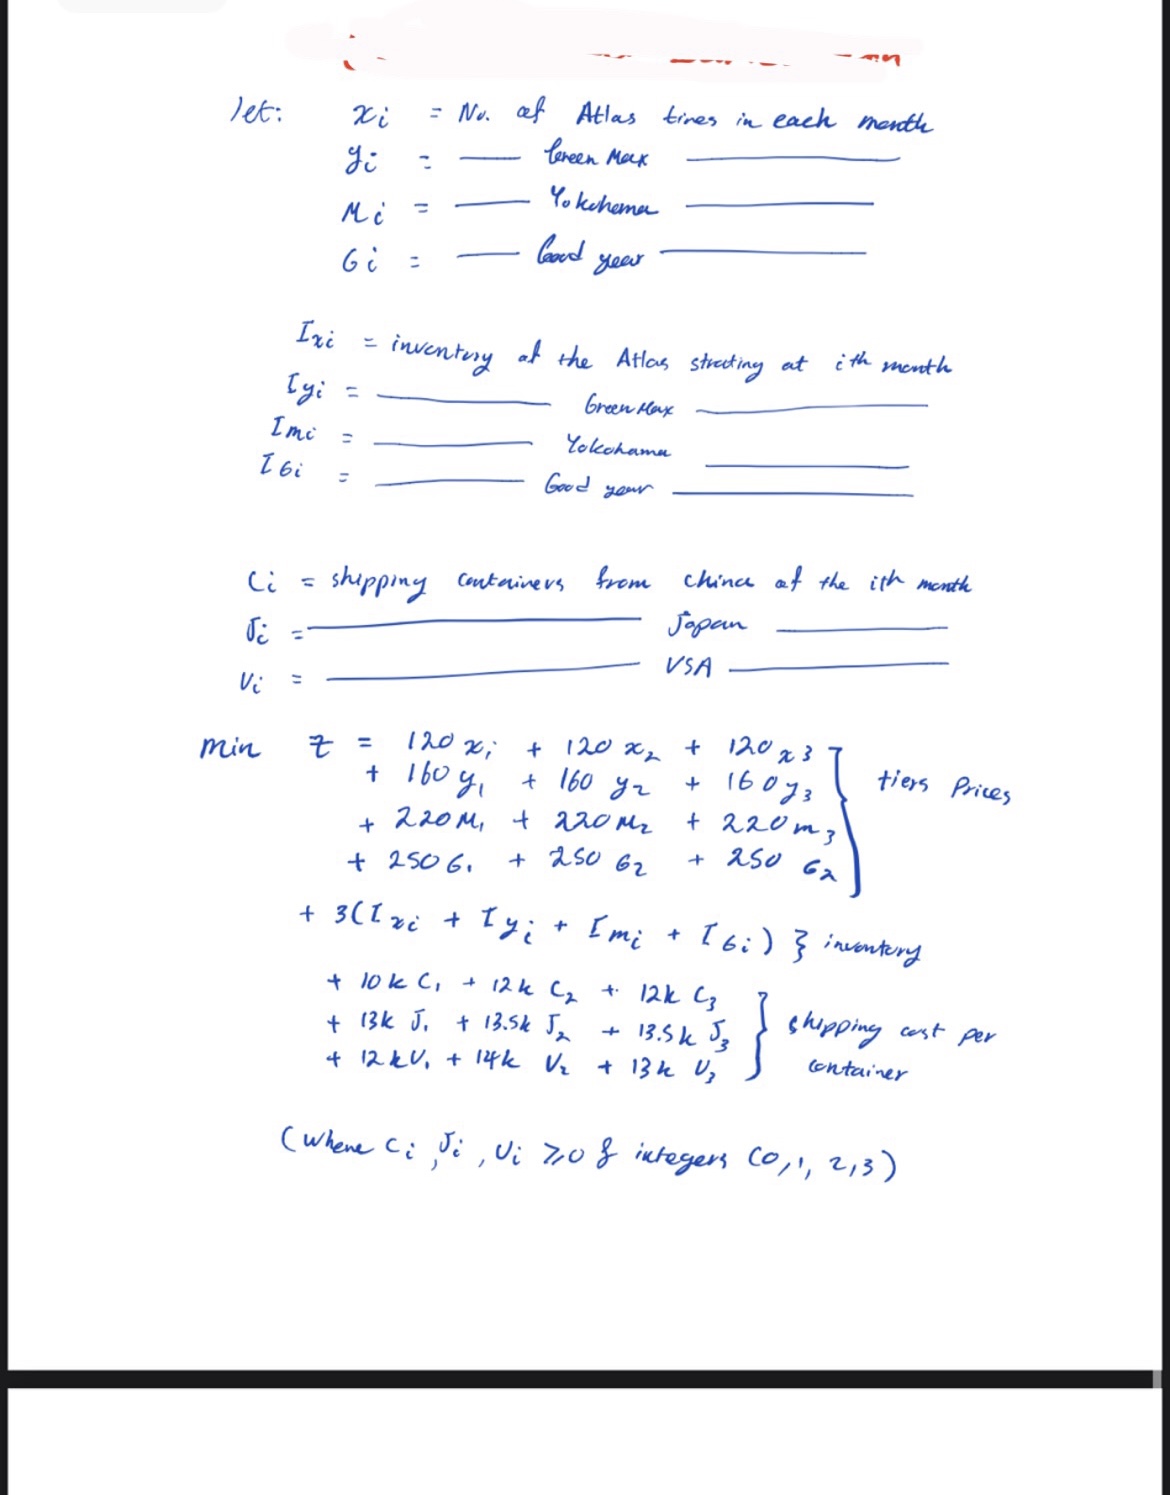 let: xi = No. of Atlas tires in each month
yi = —— Green Max ——
Mi = —— Yokohama ——
Gi = —— Good year ——
Ixi = inventory at the Atlas strating at ith month
Iyi = —— Green Max ——
Imi = —— Yokohama ——
IGi = —— Good year ——
Ci = shipping containers from china at the ith month
Ji = —— Japan ——
Ui = —— USA ——
min Z = 120 x1 + 120 x2 + 120 x3
+ 160 y1 + 160 y2 + 160 y3 } tiers Prices
+ 220 M1 + 220 M2 + 220 m3
+ 250 G1 + 250 G2 + 250 G2
+ 3(Ixi + Iyi + Imi + IGi) } inventory
+ 10k C1 + 12k C2 + 12k C3
+ 13k J1 + 13.5k J2 + 13.5k J3 } shipping cost per
+ 12k U1 + 14k U2 + 13k U3 container
(where Ci, Ji, Ui ≥ 0 & integers (0, 1, 2, 3)